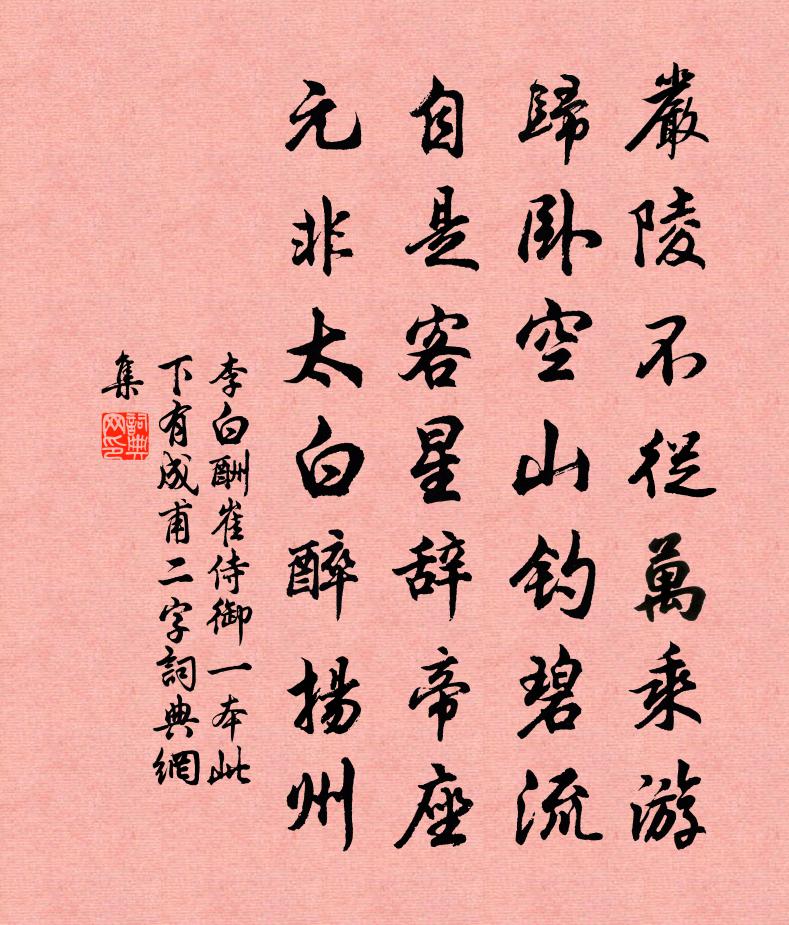 嚴陵不從萬乘游
歸臥空山釣碧流
自是客星辞帝座
元非太白醉揚州
李白酬崔侍御一本此
下有成甫二字詞典網
集
詞典網印